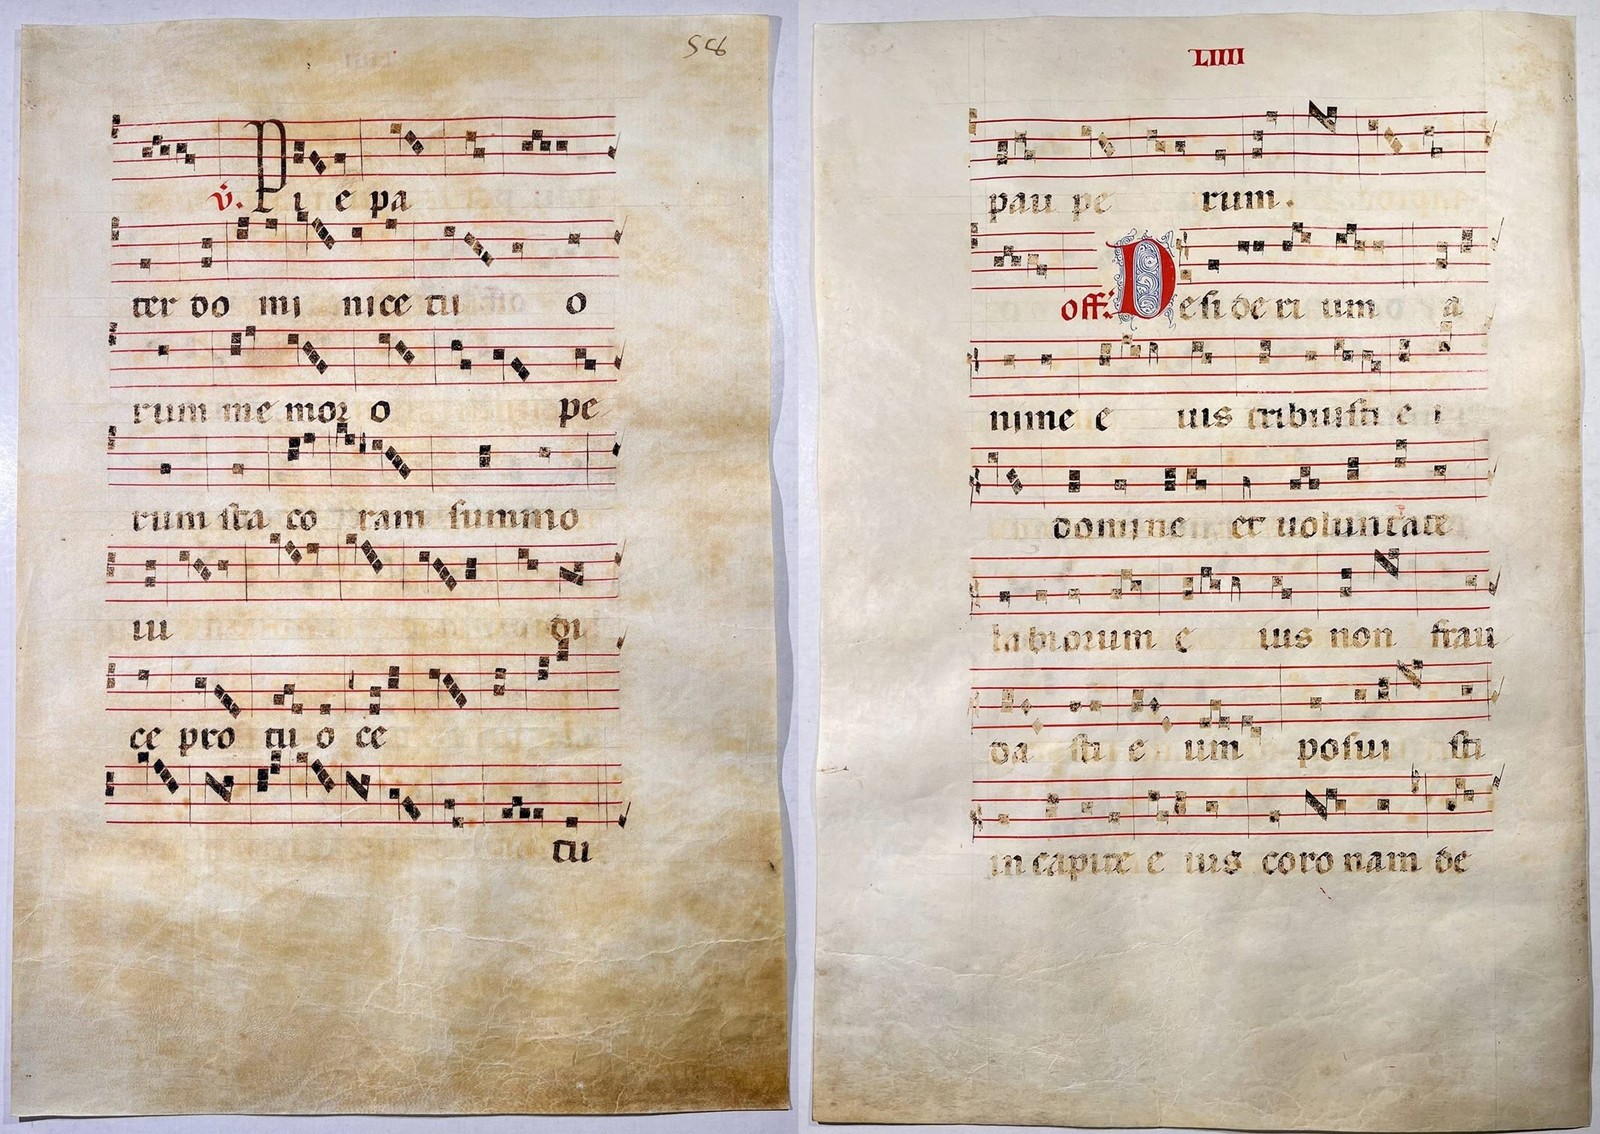 v. Pi e pa
ter do mi nice tu o
rum me mor o pe
rum sta co ram summo
iu di
ce pro tu o ce
tu
LIIII
pau pe rum.
off: Desi de ri um a
nime e ius tribuisti e i
domine et uoluntate
labiorum e ius non frau
da sti e um posui sti
in capite e ius coro nam de